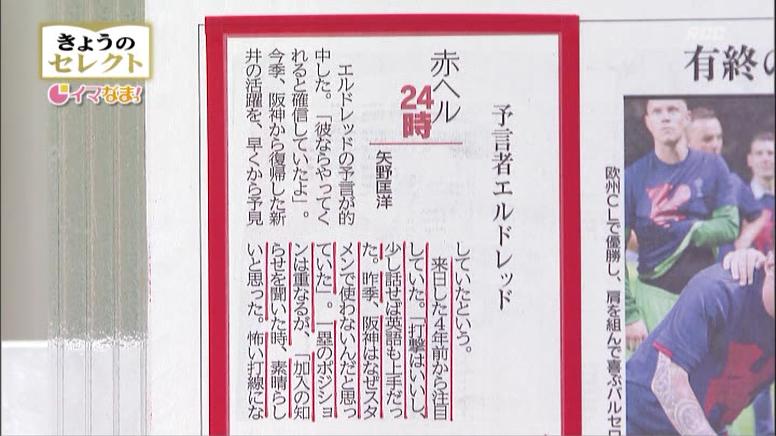 きょうの
セレクト
イマなま!
RCC
赤ヘル
24時
矢野匡洋
予言者エルドレッド
エルドレッドの予言が的
中した。「彼ならやってく
れると確信していたよ」。
今季、阪神から復帰した新
井の活躍を、早くから予見
していたという。
来日した4年前から注目
していた。「打撃はいいし、
少し話せば英語も上手だっ
た。昨季、阪神はなぜスタ
メンで使わないんだと思っ
ていた」。一塁のポジショ
ンは重なるが、「加入の知
らせを聞いた時、素晴らし
いと思った。怖い打線にな
有終の
欧州CLで優勝し、肩を組んで喜ぶバルセロ